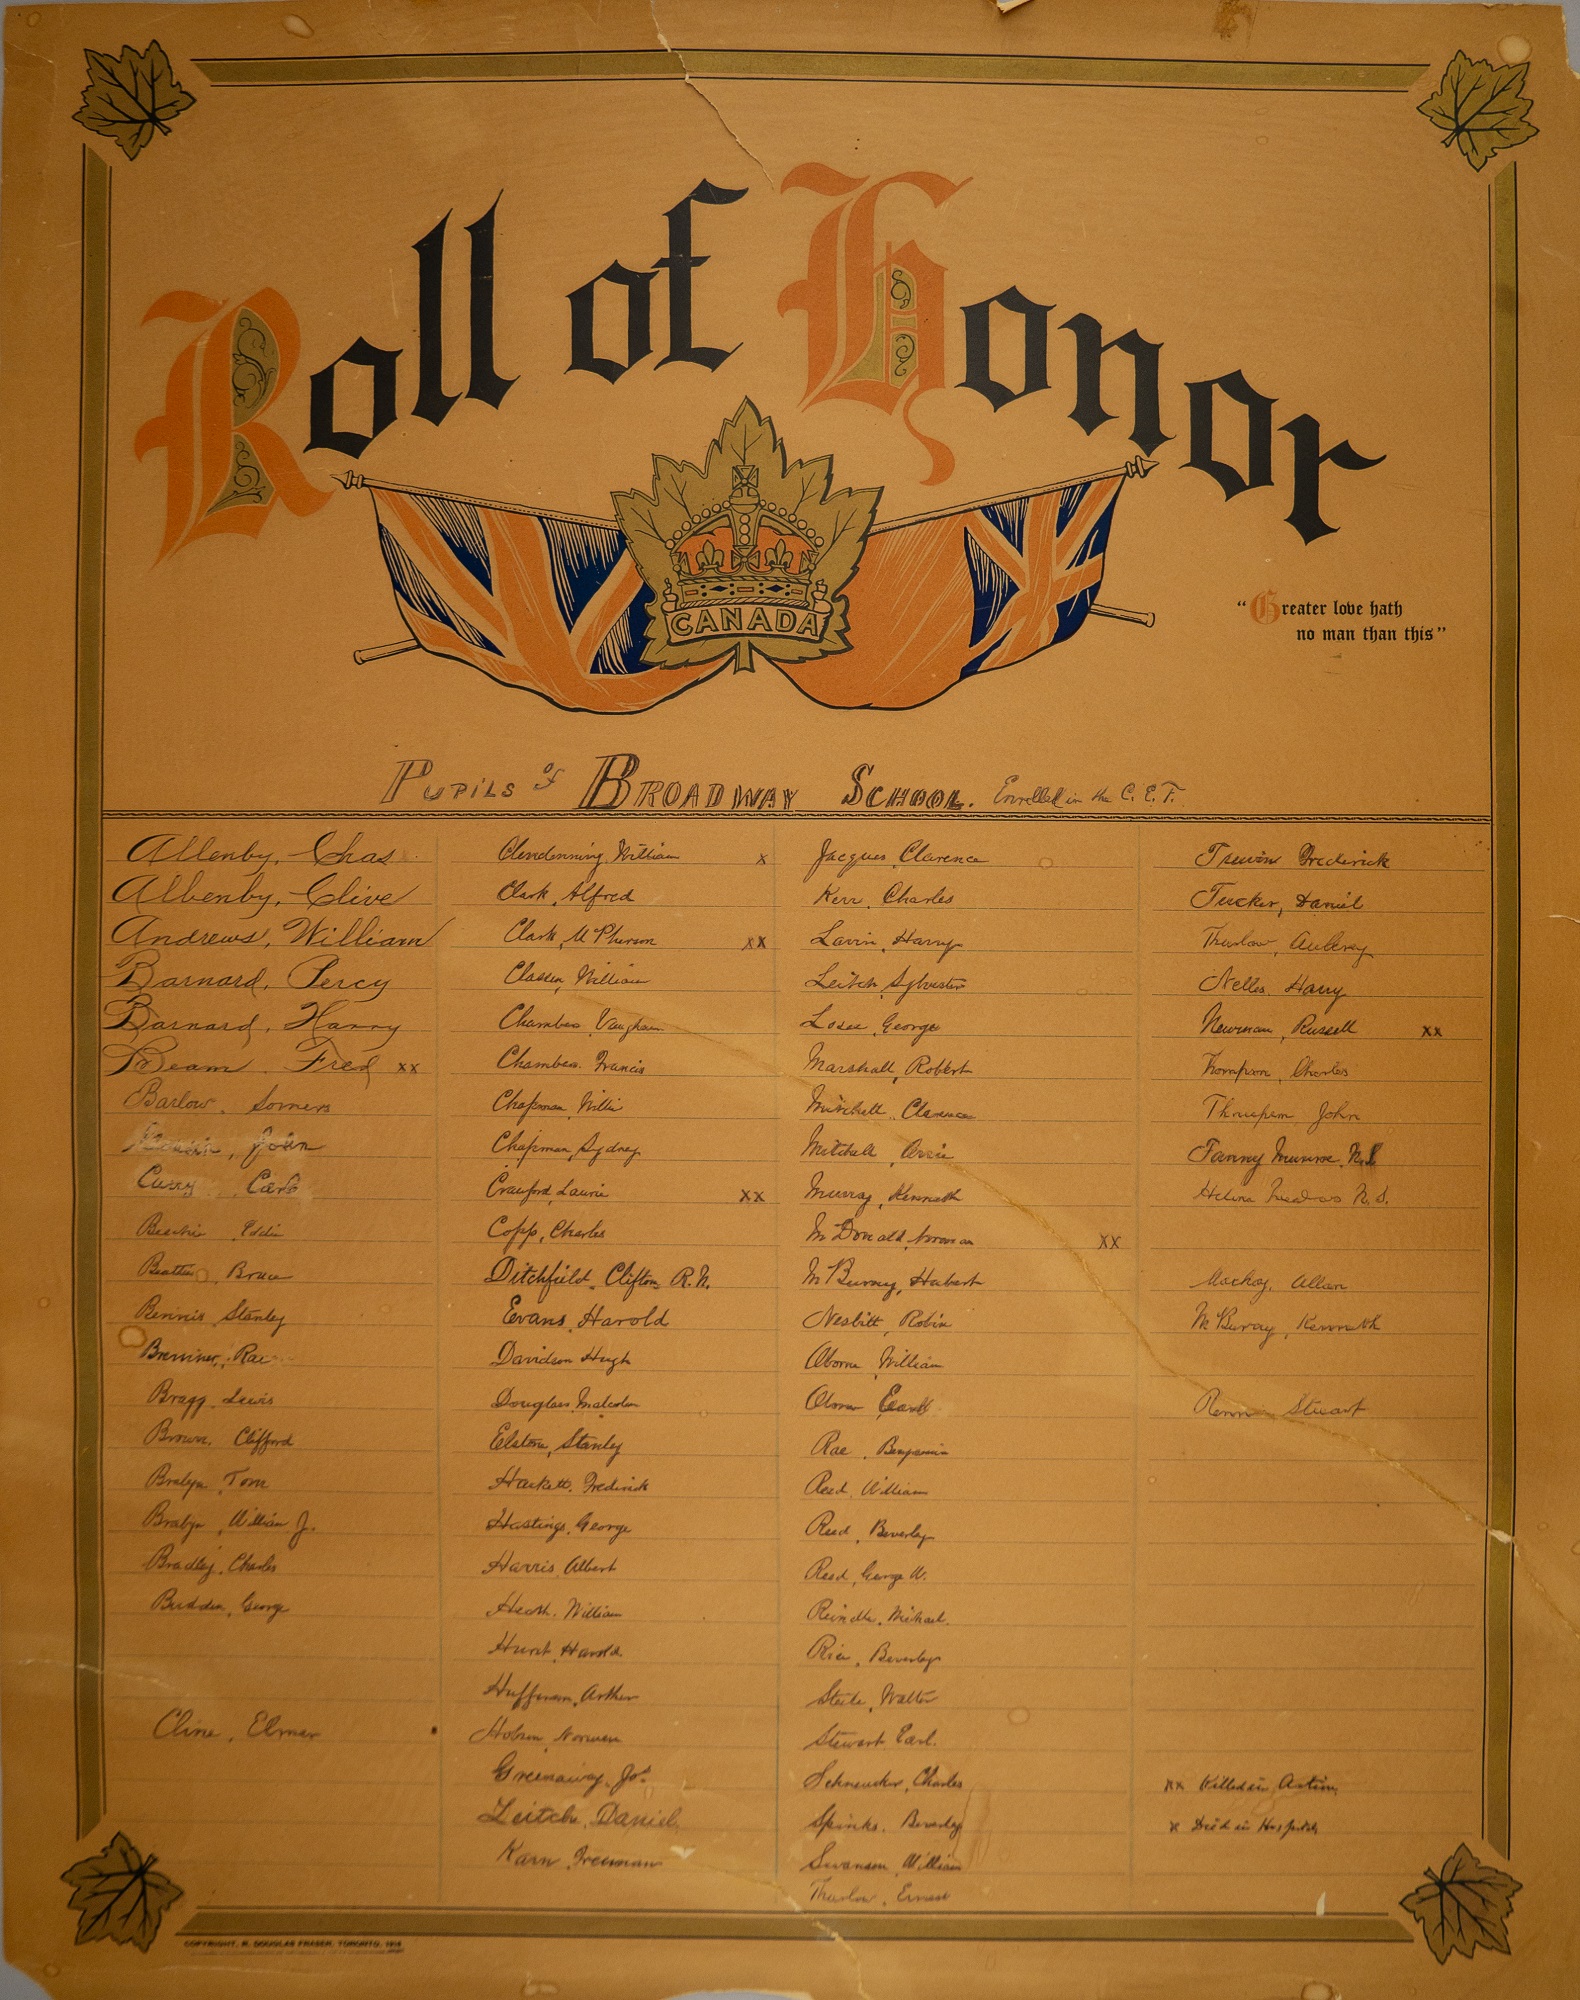 Roll of Honor
CANADA
"Greater love hath
no man than this"
Pupils of Broadway School. Enrolled in the C. E. F.
Allenby, Chas
Allenby, Clive
Andrews, William
Barnard, Percy
Barnard, Harry
Beam, Fred xx
Barlow, Somers
John
Carl
Beattie, Eddie
Beattie, Bruce
Bennis, Stanley
Bremner, Rae
Bragg, Lewis
Brown, Clifford
Brabyn, Tom
Brabyn, William J.
Bradley, Charles
Budden, George
Cline, Elmer
Clendenning, William x
Clark, Alfred
Clark, McPherson xx
Classen, William
Chambers, Vaughan
Chambers, Francis
Chapman, Willie
Chapman, Sydney
Crawford, Laurie xx
Copp, Charles
Ditchfield, Clifton R.N.
Evans, Harold
Davidson Hugh
Douglass, Malcolm
Elstone, Stanley
Hackett, Frederick
Hastings, George
Harris, Albert
Heath, William
Hurst, Harold
Huffman, Arthur
Hobson, Norman
Greenaway, Jos.
Leitch, Daniel
Karn, Freeman
Jacques, Clarence
Kerr, Charles
Lavin, Harry
Leitch, Sylvester
Losee, George
Marshall, Robert
Mitchell, Clarence
Mitchell, Orrie
Murray, Kenneth
McDonald, Norman xx
McBurney, Herbert
Nesbitt, Robin
Oborne, William
Earl
Rae, Benjamin
Reed, William
Reed, Beverley
Reed, George W.
Michael
Rice, Beverley
Steele, Walter
Stewart Earl.
Charles
Spinks, Beverley
Swanson, William
Thurlow, Ernest
Frederick
Tucker, Daniel
Thurlow, Aubrey
Nelles, Harry
Newman, Russell xx
Thompson, Charles
Thompson John
Fanny Munroe, N.S.
Helena Meadows N.S.
Mackay, Allan
McBurney, Kenneth
Stewart
xx Killed in Action
x Died in Hospital
COPYRIGHT, R. DOUGLAS FRASER, TORONTO, 1916